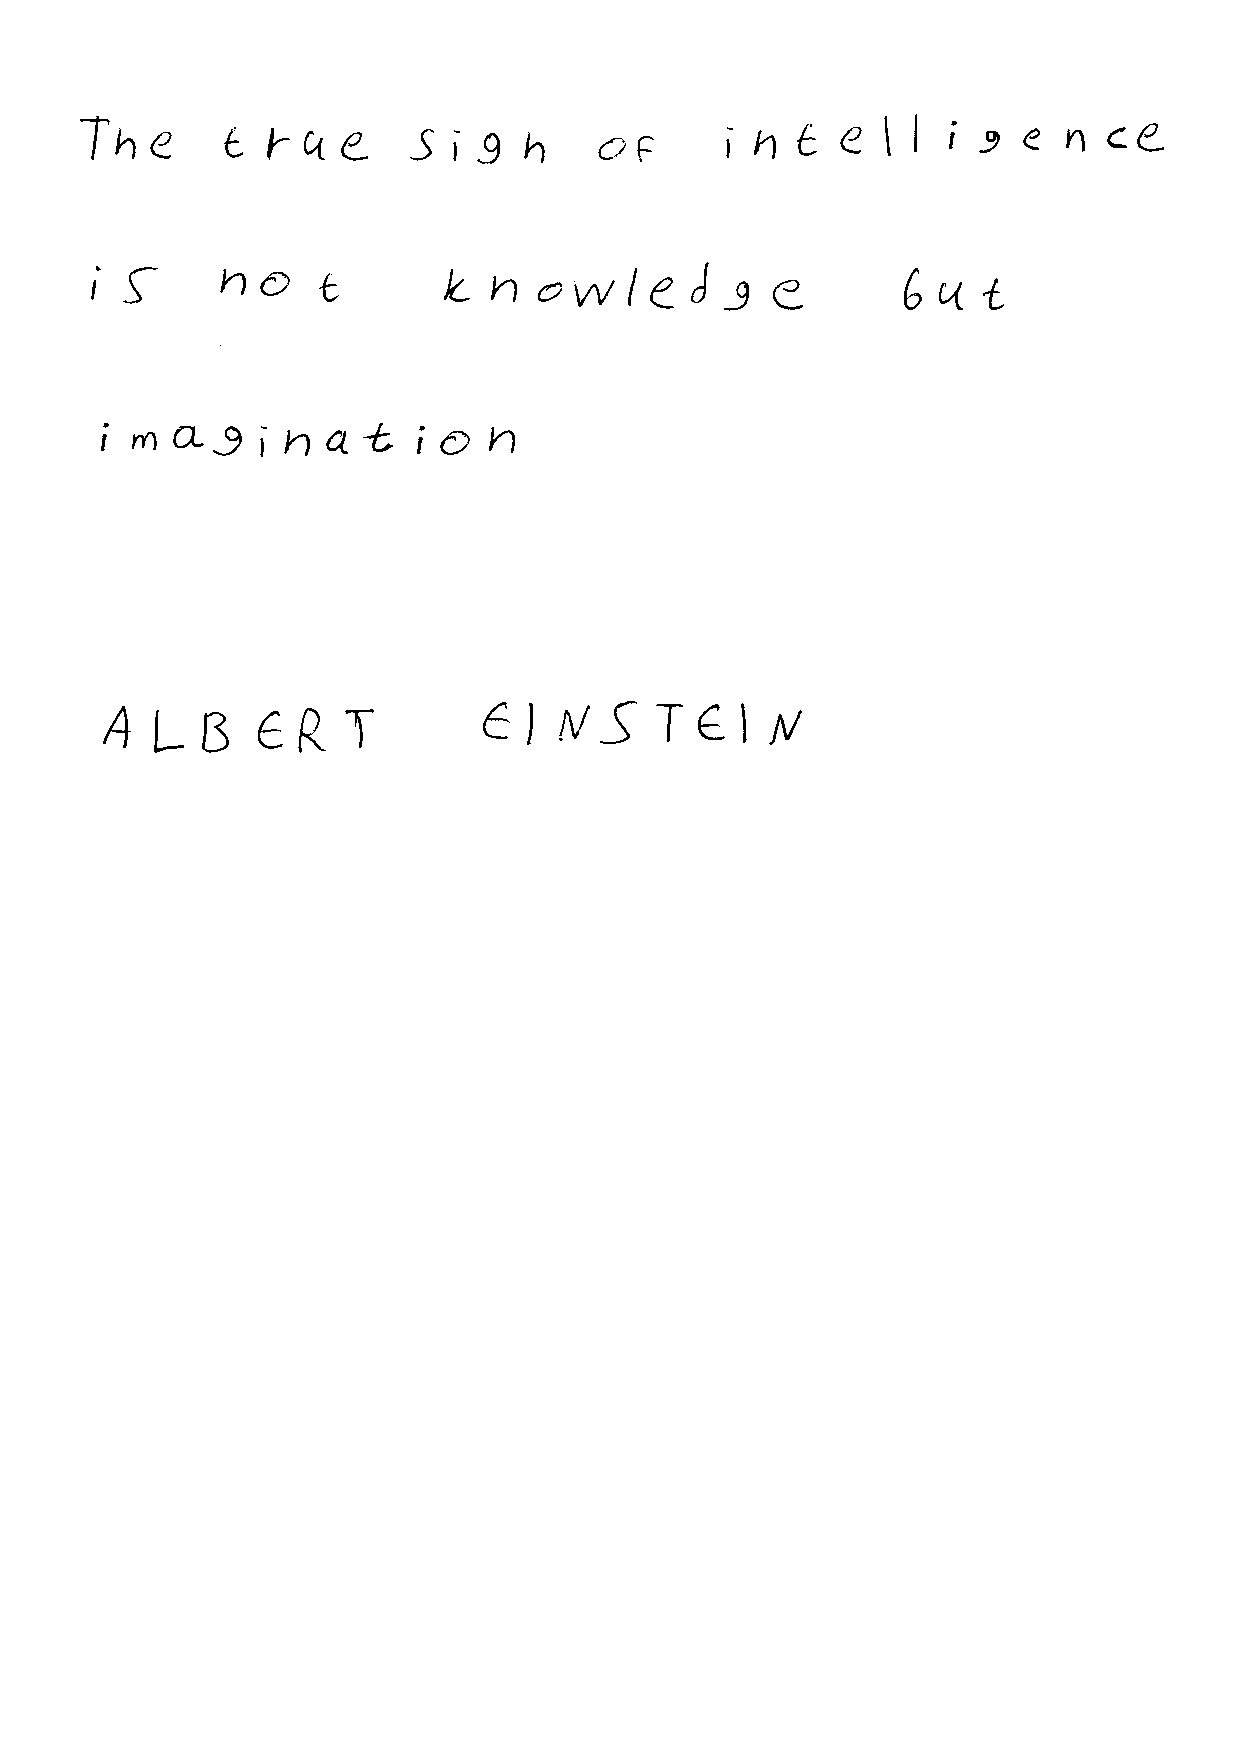 The true sign of intelligence
is not knowledge but
imagination
ALBERT EINSTEIN